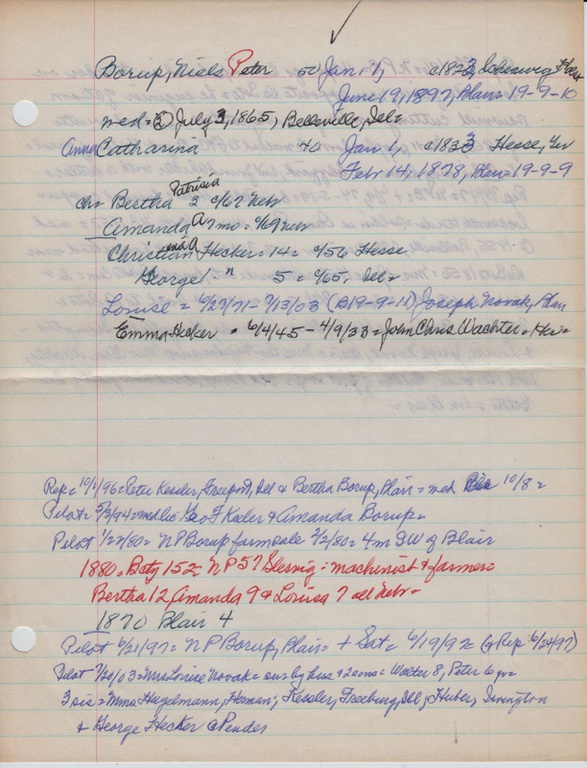 Borup, Niels Peter 50 Jan. 1, c1823, Schleswig Holst
June 19, 1897, Blair = 19-9-10
med = July 3, 1865, Belleville, Ill =
Anna Catharina 40 Jan 1, c1833 Hesse, Ger
Febr 14, 1878, Blair = 19-9-9
ch = Bertha Patrisia 2 c/67 Nebr
Amanda A 7 mo = c/69 Nebr
Christian Hecker = 14 = c/56 Hesse
George " 5 = c/65, Ill =
Louise = 6/27/71 - 7/13/03 (B19-9-11) Joseph Novak, Blair
Emma Hecker = 6/4/45 - 4/9/33 = John Chris Wachter =
Rep = 10/1/96 = Peter Kessler, Freeport, Ill & Bertha Borup, Blair = med 10/8 =
Pilot = 5/3/94 = med lic F Keeler & Amanda Borup =
Pilot 1/22/80 = N P Borup farm sale 2/2/80 = 4m SW of Blair
1880 = Batg 152 = N P 57 Slesvig : machinist & farmer =
Bertha 12, Amanda 9 & Louisa 7 all Nebr =
1870 Blair 4
Pilot 6/21/97 = N P Borup, Blair = + Sat = 6/19/97 (& Rep 6/24/97)
Pilot 7/20/03 = Mrs Louise Novak = sur by hus & 2 sons = Walter 8, Peter 6 yr =
3 sis = Mmes Hugelmann, Herman; Kessler, Freeburg, Ill; Huber, Irvington
& George Hecker @ Pender